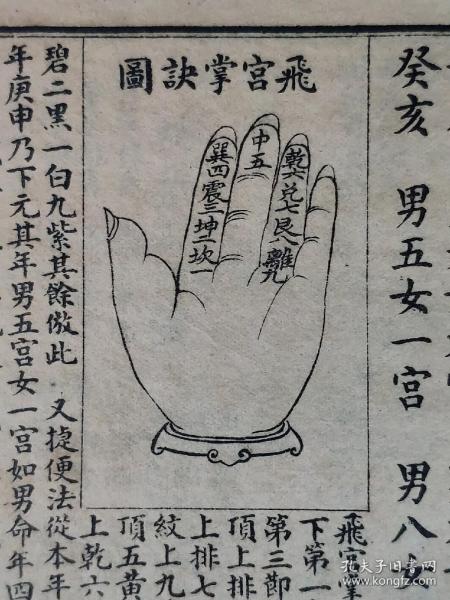 癸亥 男五女一宮 男八
飛宮掌訣圖
乾六兌七艮八離九
中五
巽四震三坤二坎一
飛宮掌
下第一
第三節
頂上排
上排七
紋上九
頂五黃
上乾六
碧二黑一白九紫其餘倣此 又捷便法從本年
年庚申乃下元其年男五宮女一宮如男命年四
孔夫子旧书网